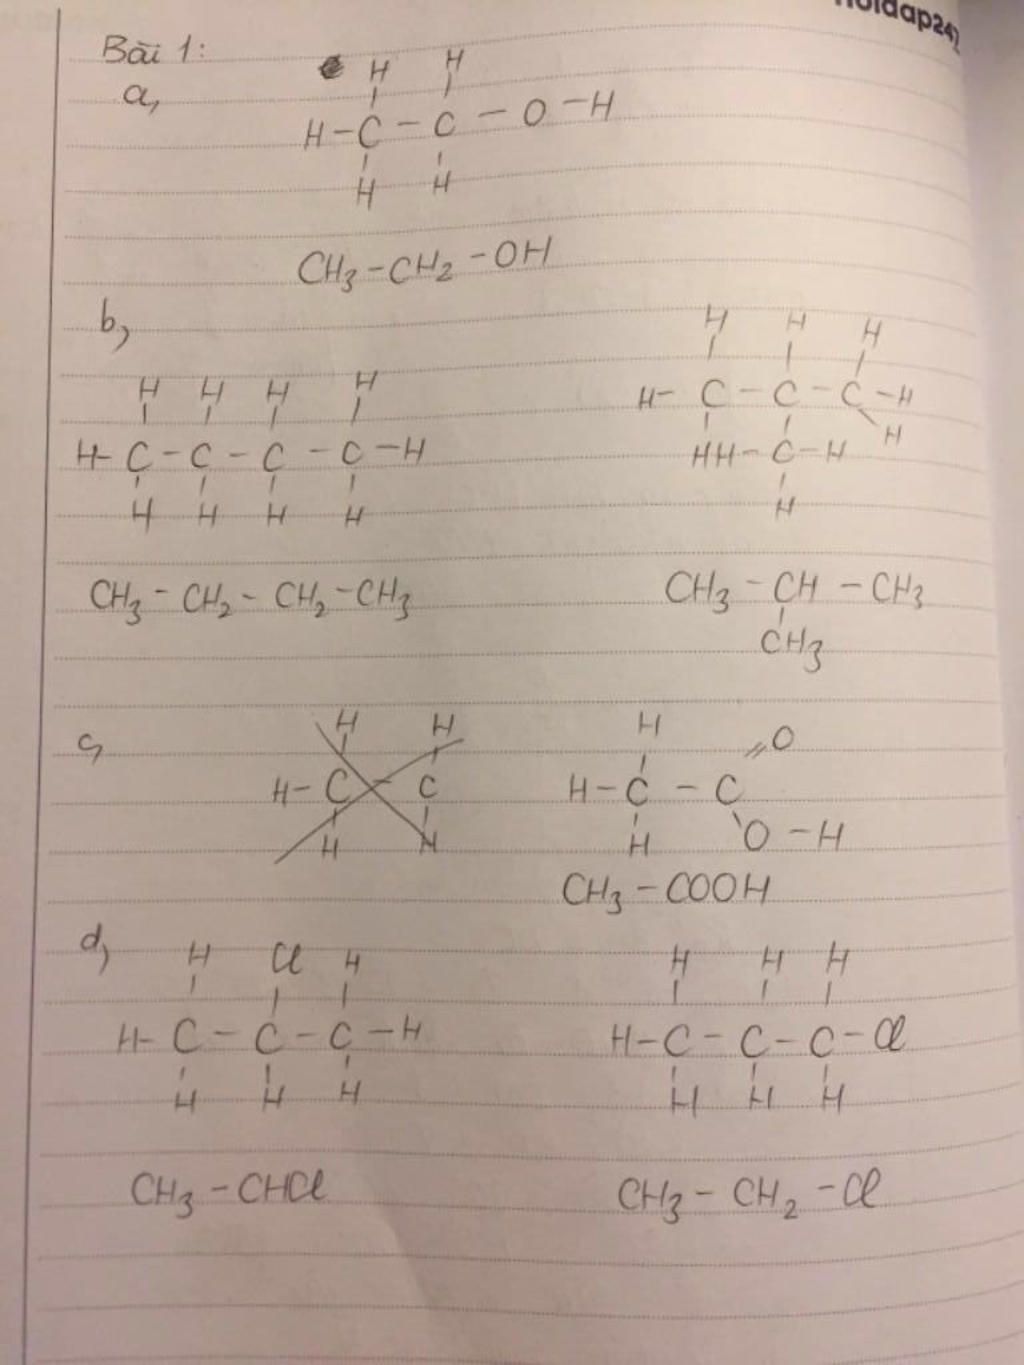 hoidap247
Bài 1:
a,
H H
H-C-C-O-H
H H
CH3-CH2-OH
b,
H H H H
H-C-C-C-C-H
H H H H
CH3-CH2-CH2-CH3
H H H
H-C-C-C-H
H
HH-C-H
H
CH3-CH-CH3
CH3
c,
H H
H-C-C
H H
H
H-C-C
=O
O-H
H
CH3-COOH
d,
H Cl H
H-C-C-C-H
H H H
CH3-CHCl
H H H
H-C-C-C-Cl
H H H
CH3-CH2-Cl